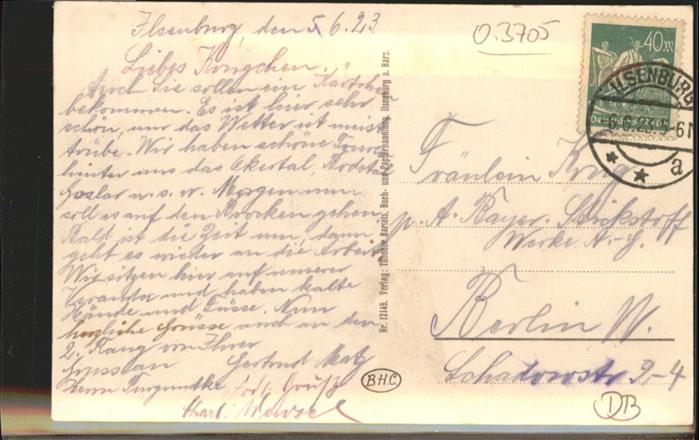 Ilsenburg, den 5.6.23
Liebes Königchen!
Auch Sie sollen ein Kärtchen
bekommen. Es ist hier sehr
schön, nur das Wetter ist meist
trübe. Wir haben schöne Touren
hinter uns das Okertal, Bodetal
Goslar u.s.w. Morgen nun
soll es auf den Brocken gehen.
Bald ist die Zeit um, dann
geht es wieder an die Arbeit.
Wir sitzen hier auf unserer
Veranda und haben kalte
Hände und Füsse. Nun
herzliche Grüsse auch an den
2. Rang von Ihrer
Gertrud
Herrn
Gruß
Charl.
Nr. 12149. Verlag: Theodor Bartels, Buch- und Papierhandlung, Ilsenburg a. Harz.
B.H.C.
0.3705
40 M
ILSENBURG
a
Fräulein König
p. A. Bayer. Stickstoff
Werke A.-G.
Berlin W.
Schadowstr. 2-4
DB